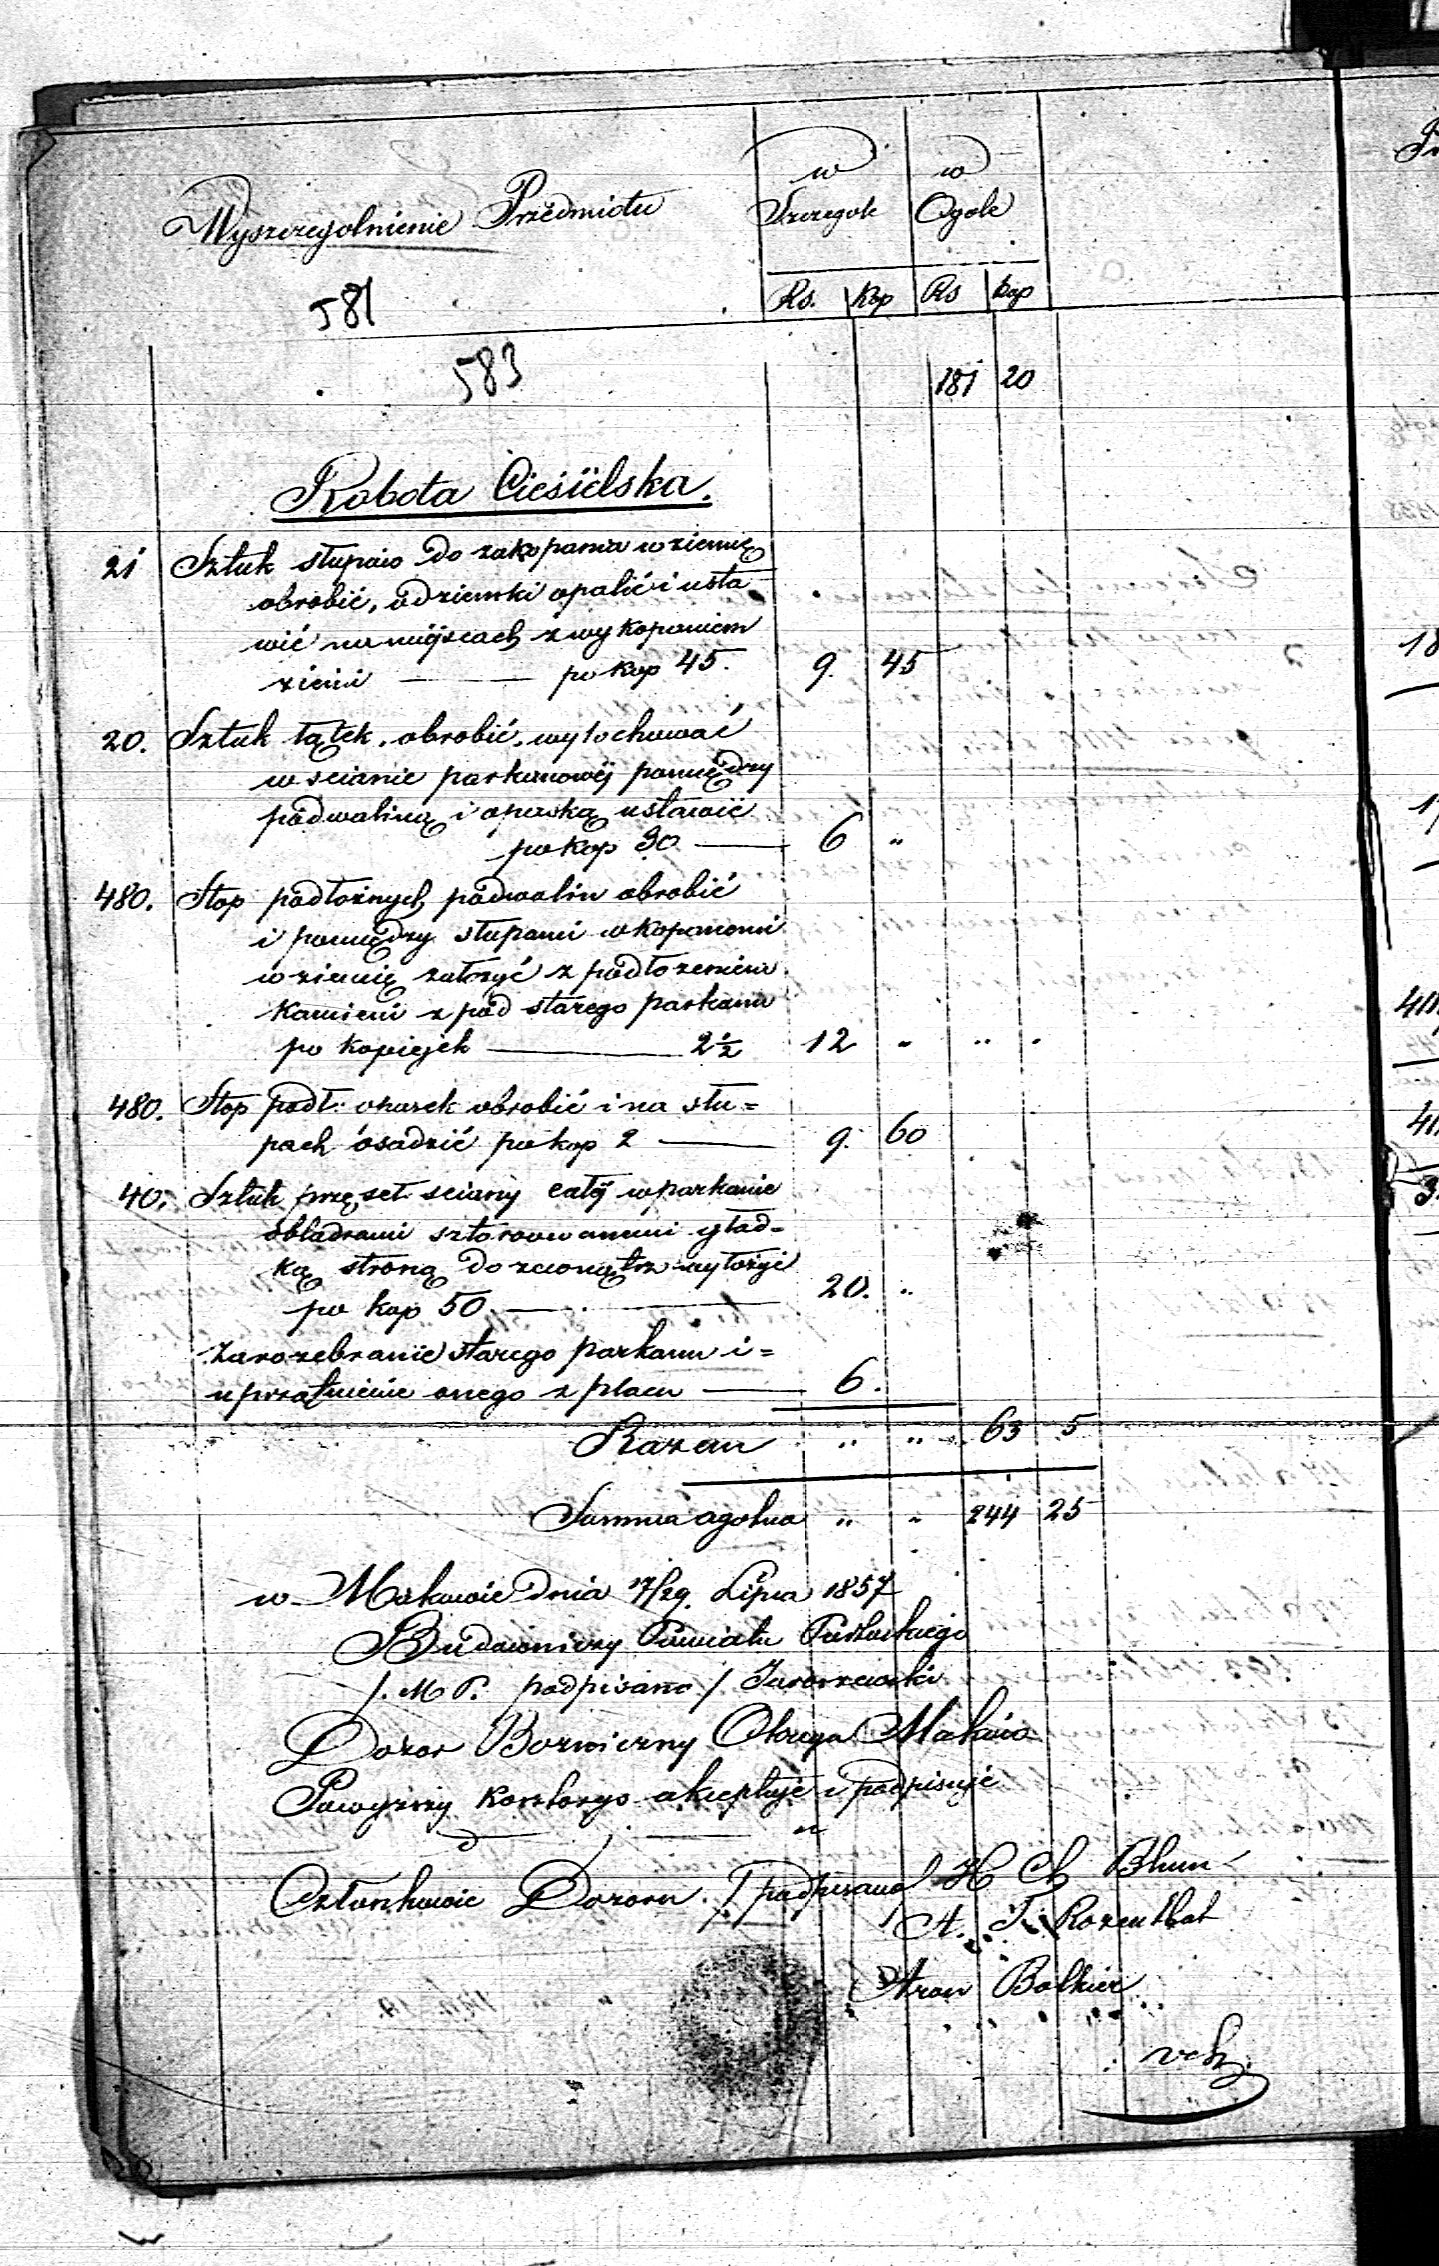 Wyszczegolnienie Przedmiotu
w Szczegole
w Ogole
Rs. Kop Rs kop
581
583
181 20
Robota Ciesielska.
21 Sztuk słupów do zakopania w ziemię
obrobić, odziemki opalić i usta-
wić na miejscach z wykopaniem
ziemi — po kop 45. 9. 45
20. Sztuk łątek obrobić, wy
w scianie parkanowej pomiędzy
podwaliną i opaską ustawić
po kop 30 — 6 "
480. Stop podłożnych podwalin obrobić
i pomiędzy słupami wkopanemi
w ziemię założyć z podłożeniem
Kamieni z pod starego parkanu
po kopiejek — 2½ 12 " " "
480. Stop podł: obrobić i na słu=
pach osadzić po kop 2 — 9. 60
40. Sztuk przęseł sciany całej w parkanie
gład-
ką stroną do zewnątrz wyłożyć
po kop 50. — 20. "
Za rozebranie starego parkanu i=
uprzątnienie onego z placu — 6.
Razem " " 63 5
Summa ogolna " " 244 25
w Makowie dnia 17/29. Lipca 1857
Budowniczy Powiatu Pułtuskiego
/. M P. podpisano /
Dozor Bozniczny Okręgu Makowa
Powyższy Kosztorys akceptuje i podpisuje
Członkowie Dozoru. / podpisano / H Ch Blum
A. I. Rozenthal
Aron Bolkier